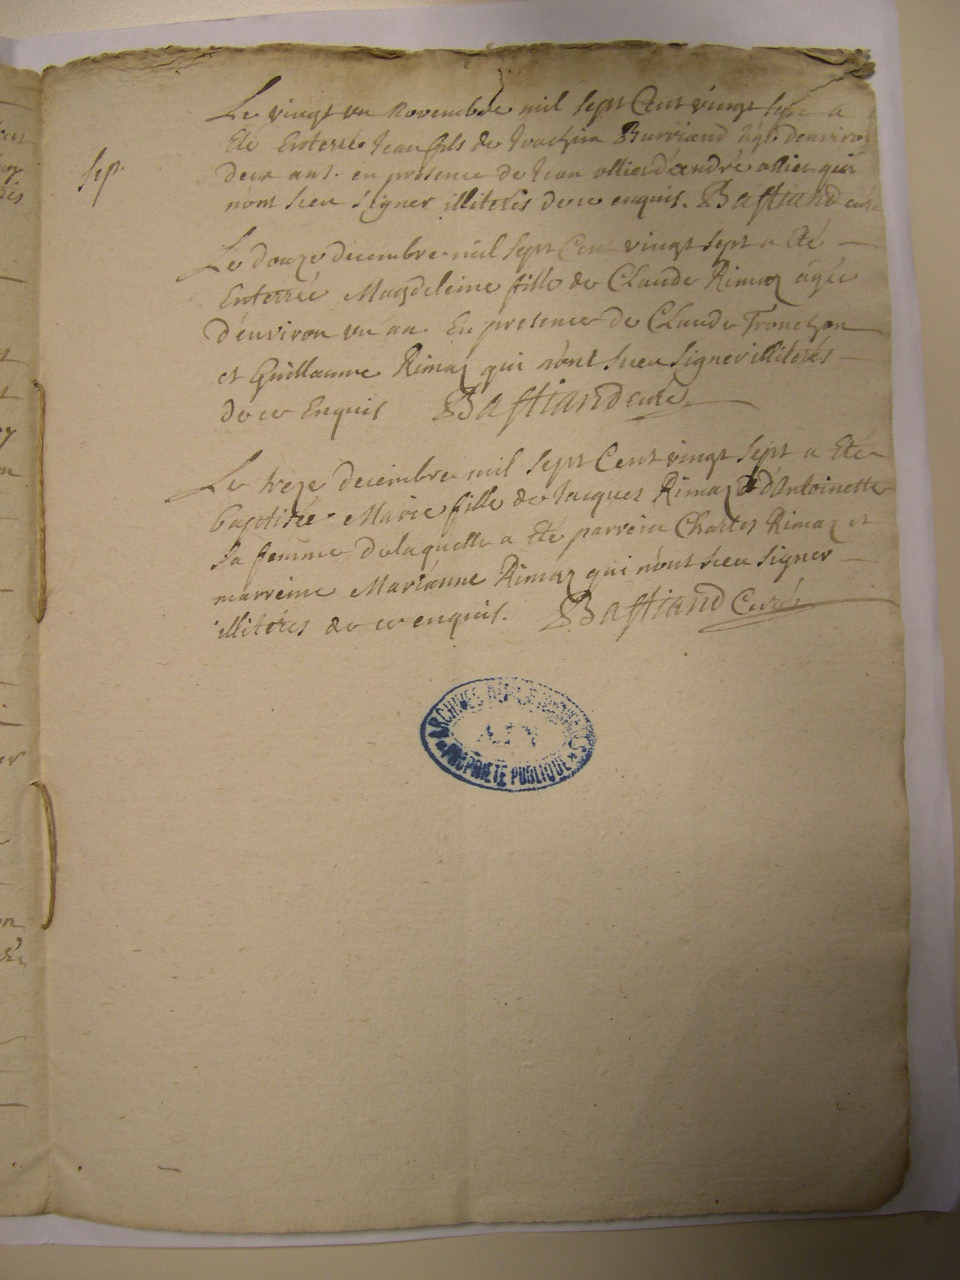 Le vingt un novembre mil sept Cent vingt sept a
Eté Enterré Jean fils de Joachin Burriand âgé d'environ
deux ans. en présence de Jean ollier d'andré ollier qui
n'ont sceu signer illiterés de ce enquis. Bastiand curé
sep.
Le douze decembre mil sept Cent vingt sept a Eté
Enterrée Magdeleine fille de Claude Rimaz âgée
d'environ un an. En presence de Claude Tronchon
et Guillaume Rimaz qui n'ont sceu signer illiterés
de ce Enquis Bastiand curé
Le treze decembre mil sept Cent vingt sept a Eté
baptisée Marie fille de Jacques Rimaz d'Antoinette
sa femme de laquelle a Eté parrein Charles Rimaz et
marreine Marianne Rimaz qui n'ont sceu signer
illiterés de ce enquis. Bastiand Curé
ARCHIVES DEPARTEMENTALES
PROPRIETE PUBLIQUE